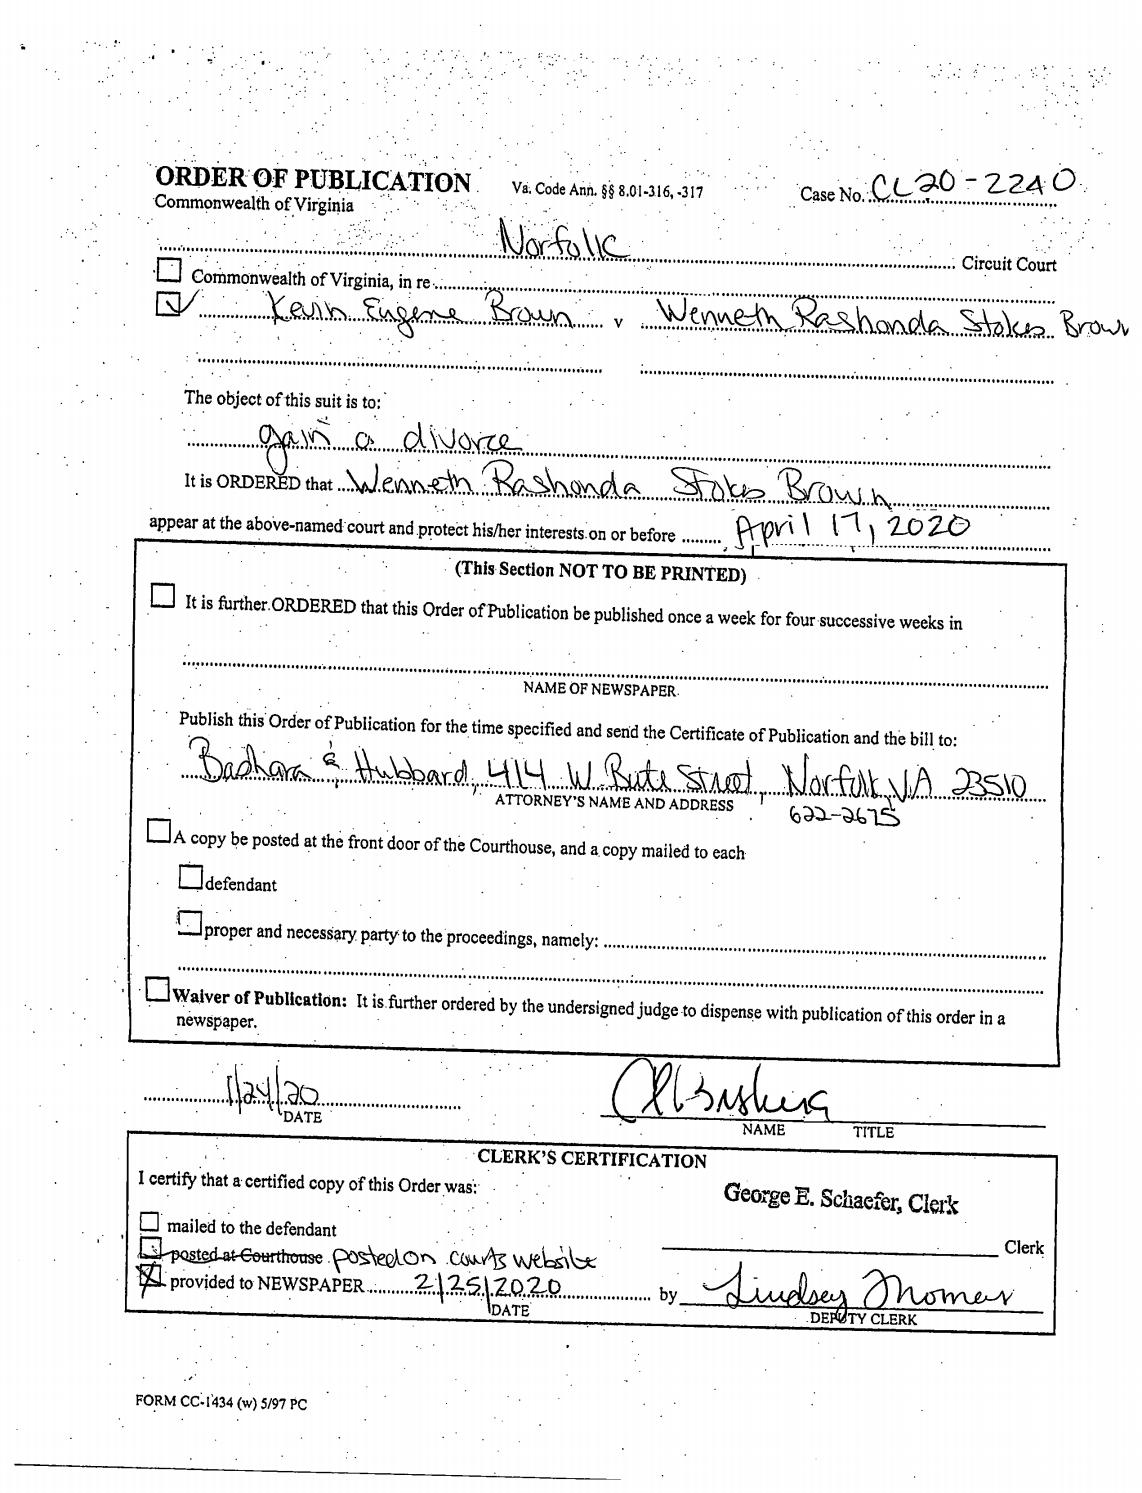 ORDER OF PUBLICATION Va. Code Ann. §§ 8.01-316, -317 Case No. CL20-2240
Commonwealth of Virginia
Norfolk Circuit Court
Commonwealth of Virginia, in re
Kevin Eugene Brown v Wenneth Rashonda Stokes Brown
The object of this suit is to:
gain a divorce
It is ORDERED that Wenneth Rashonda Stokes Brown
appear at the above-named court and protect his/her interests on or before April 17, 2020
(This Section NOT TO BE PRINTED)
It is further ORDERED that this Order of Publication be published once a week for four successive weeks in
NAME OF NEWSPAPER
Publish this Order of Publication for the time specified and send the Certificate of Publication and the bill to:
Bashara & Hubbard, 414 W. Bute Street, Norfolk, VA 23510
ATTORNEY'S NAME AND ADDRESS 622-2675
A copy be posted at the front door of the Courthouse, and a copy mailed to each
defendant
proper and necessary party to the proceedings, namely:
Waiver of Publication: It is further ordered by the undersigned judge to dispense with publication of this order in a
newspaper.
1/24/20
DATE
NAME TITLE
CLERK'S CERTIFICATION
I certify that a certified copy of this Order was:
George E. Schaefer, Clerk
mailed to the defendant
posted at Courthouse posted on courts website Clerk
provided to NEWSPAPER 2/25/2020 by Lindsey Thomas
DATE DEPUTY CLERK
FORM CC-1434 (w) 5/97 PC